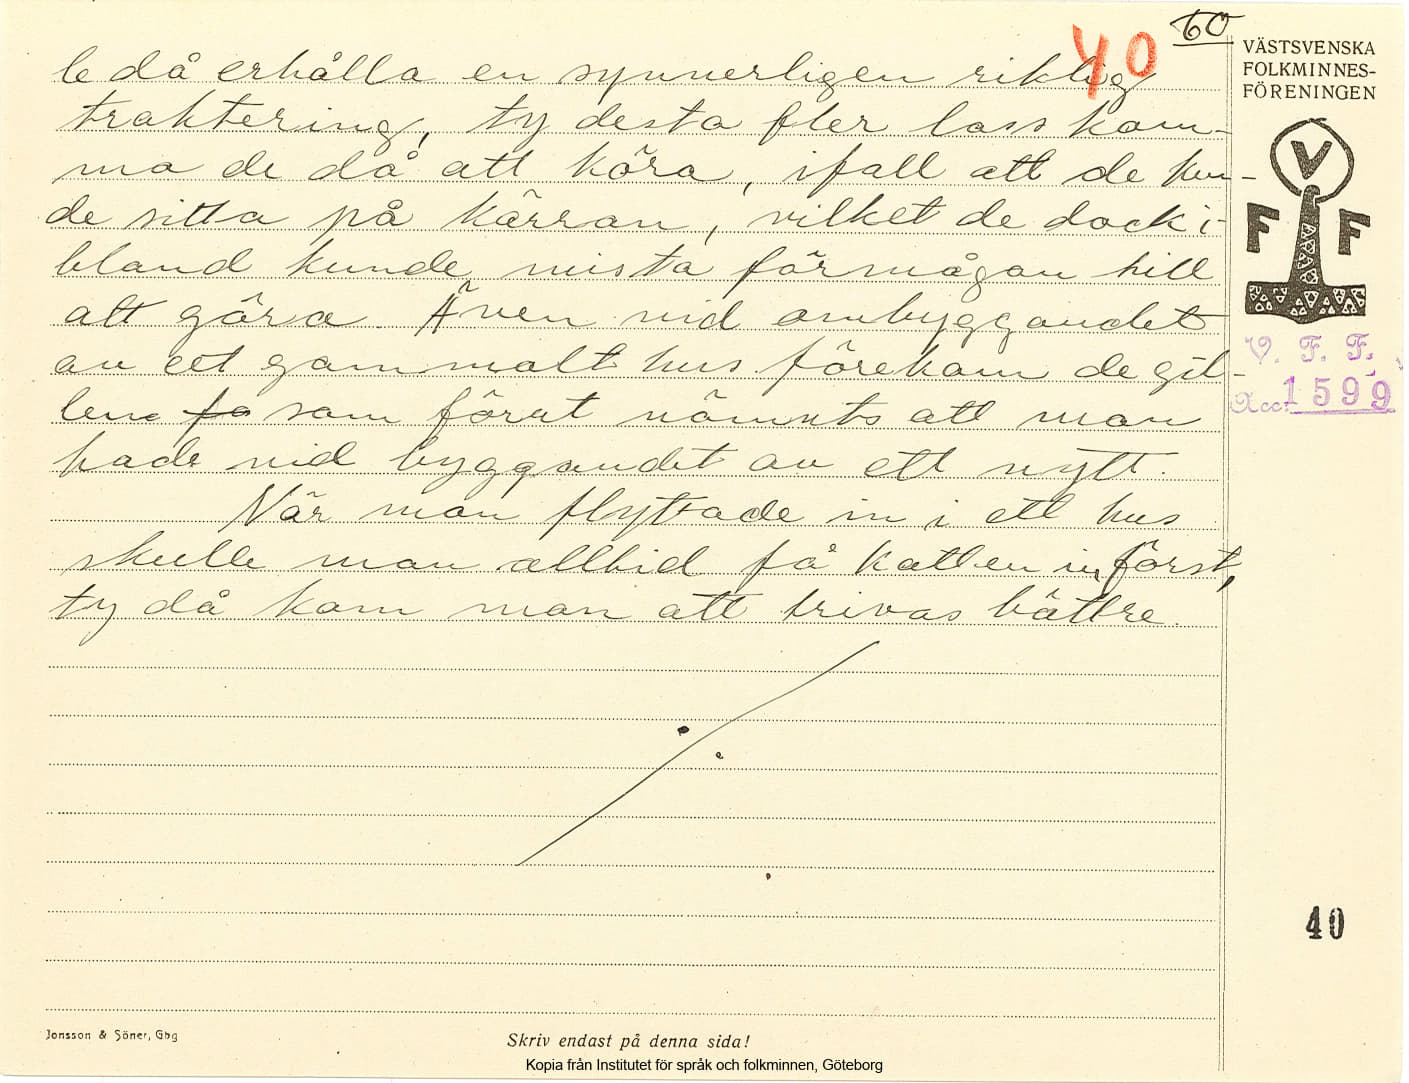 60
40
VÄSTSVENSKA
FOLKMINNES-
FÖRENINGEN
le då erhålla en synnerligen riklig
traktering, ty desto fler lass kom-
mo de då att köra, ifall att de kun-
de sitta på kärran, vilket de dock i-
bland kunde mista förmågan till
att göra. Även vid ombyggandet
av ett gammalt hus förekom de gil-
lena fo som förut nämnts att man
hade vid byggandet av ett nytt.
När man flyttade in i ett hus
skulle man alltid få katten in först,
ty då kom man att trivas bättre.
V
F F
V. F. F.
Acc. 1599
40
Jonsson & Söner, Gbg
Skriv endast på denna sida!
Kopia från Institutet för språk och folkminnen, Göteborg